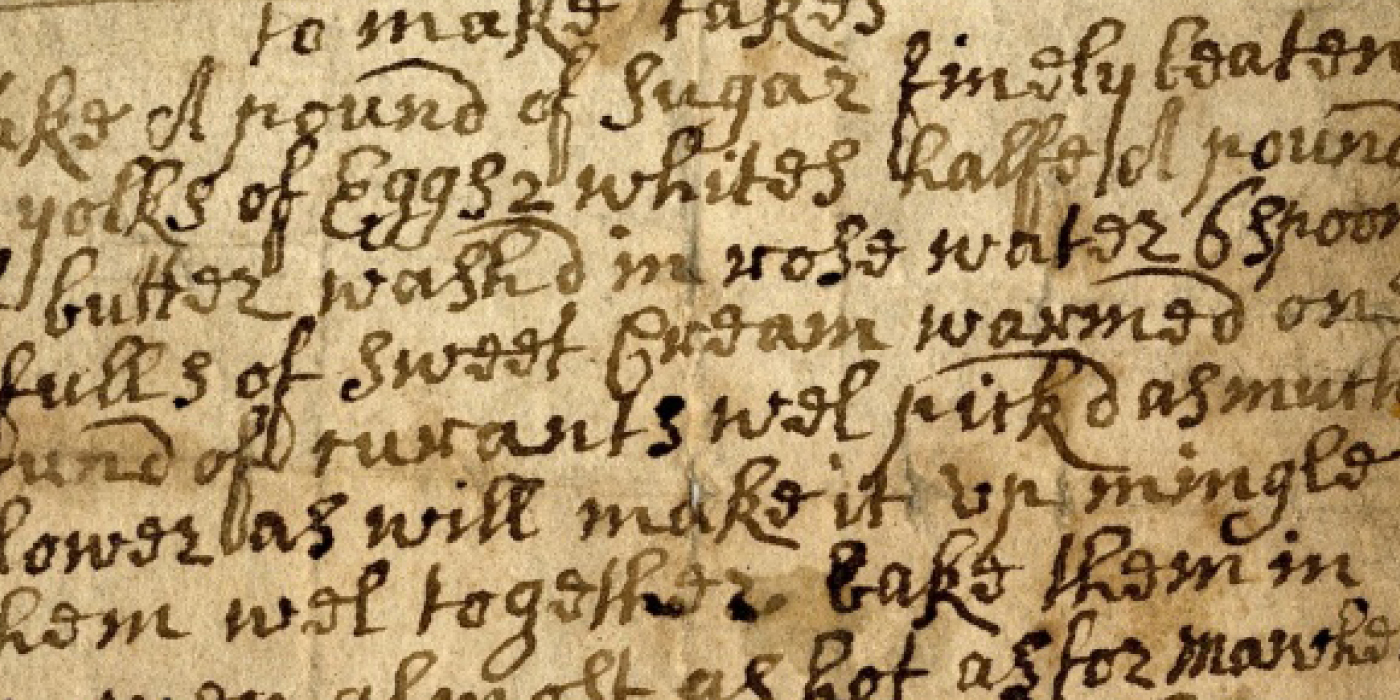 to make Cakes
ake A pound of Sugar finely beaten
yolks of Eggs 2 whites halfe A pound
butter washd in rose water 6 spoon
fulls of sweet Cream warmed on
ound of Currants wel pickd as much
lower as will make it up mingle
hem wel together bake them in
almost as hot as for